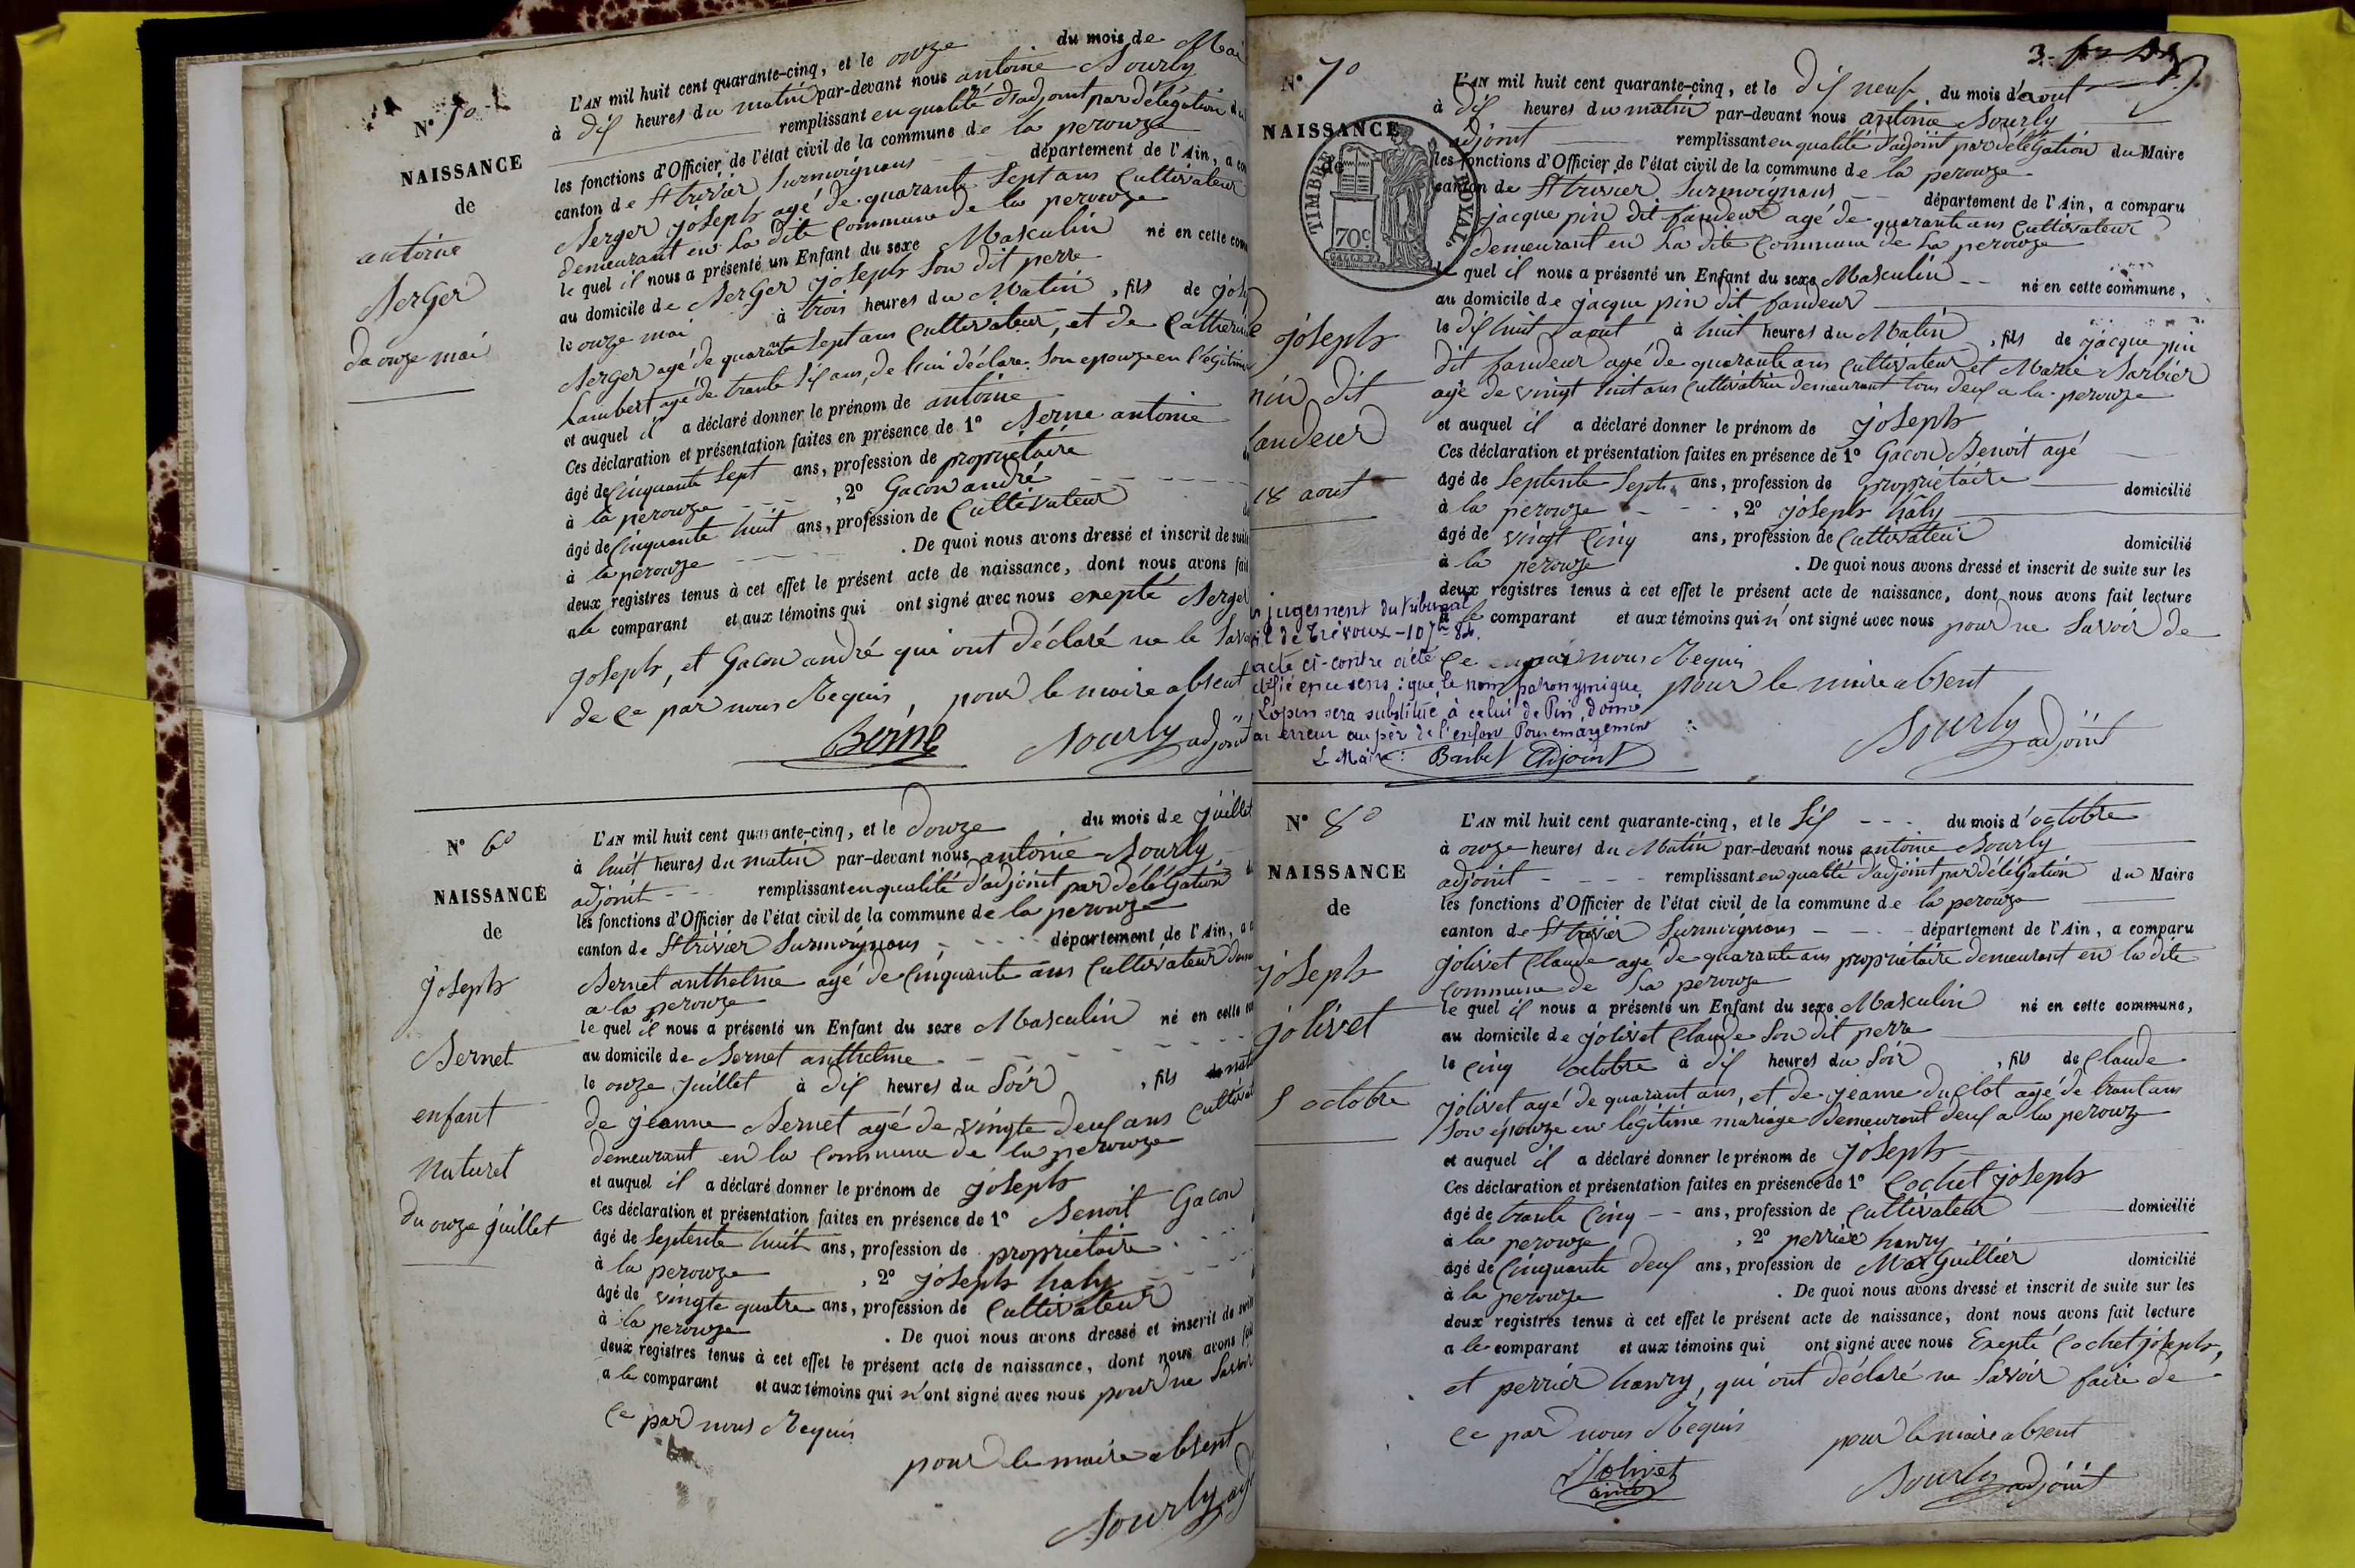 N° 5°
NAISSANCE
de
antoine
Berger
du onze mai
L'AN mil huit cent quarante-cinq, et le onze du mois de Mai
à dix heures du matin par-devant nous antoine Bourly
remplissant en qualité d'adjoint par délégation du
les fonctions d'Officier de l'état civil de la commune de la perouze
canton de St trivier Surmoignans département de l'Ain, a com
Berger joseph agé de quarante Sept ans Cultivateur
demeurant en la dite Commune de la perouze
le quel il nous a présenté un Enfant du sexe Masculin né en cette com
au domicile de Berger joseph Son dit perre
le onze mai à trois heures du Matin, fils de jose
Berger agé de quarante Sept ans Cultivateur, et de Catherine
Lambert agé de trante Six ans, de lui déclare Son epouze en légitime
et auquel il a déclaré donner le prénom de antoine
Ces déclaration et présentation faites en présence de 1° Berne antoine
âgé de Cinquante Sept ans, profession de propriétaire
à la perouze, 2° Gacon andré
âgé de Cinquante huit ans, profession de Cultivateur
à la perouze. De quoi nous avons dressé et inscrit de suite
deux registres tenus à cet effet le présent acte de naissance, dont nous avons fait
a le comparant et aux témoins qui ont signé avec nous exepté Berger
joseph, et Gacon andré qui ont déclaré ne le Savoir
de Ce par nous Requis, pour le maire absent
Berne Bourly adjoint
N° 6°
NAISSANCE
de
joseph
Bernet
enfant
naturel
du onze juillet
L'AN mil huit cent quarante-cinq, et le douze du mois de juillet
à huit heures du matin par-devant nous antoine Bourly
adjoint remplissant en qualité d'adjoint par délégation du
les fonctions d'Officier de l'état civil de la commune de la perouze
canton de St trivier Surmoignans département de l'Ain, a c
Bernet anthelme agé de Cinquante ans Cultivateur deme
a la perouze
le quel il nous a présenté un Enfant du sexe Masculin né en cette com
au domicile de Bernet anthelme
le onze juillet à dix heures du Soir, fils natu
de jeanne Bernet agé de vingte deux ans Cultivat
demeurant en la Commune de la perouze
et auquel il a déclaré donner le prénom de joseph
Ces déclaration et présentation faites en présence de 1° Benoit Gacon
âgé de Septente huit ans, profession de propriétaire
à la perouze, 2° joseph haly
âgé de vingte quatre ans, profession de Cultivateur
à la perouze. De quoi nous avons dressé et inscrit de suite
deux registres tenus à cet effet le présent acte de naissance, dont nous avons fait
a le comparant et aux témoins qui n'ont signé avec nous pour ne Savoir
Ce par nous Requis
pour le maire absent
Bourly adj
N° 7°
NAISSANCE
de
joseph
pin dit
fandeur
18 aout
TIMBRE ROYAL
70 c.
L'AN mil huit cent quarante-cinq, et le dix neuf du mois d'aout
à dix heures du matin par-devant nous antoine Bourly
adjoint remplissant en qualité d'adjoint par délégation du Maire
les fonctions d'Officier de l'état civil de la commune de la perouze
canton de St trivier Surmoignans département de l'Ain, a comparu
jacque pin dit fandeur agé de quarante ans Cultivateur
demeurant en la dite Commune de la perouze
le quel il nous a présenté un Enfant du sexe Masculin né en cette commune,
au domicile de jacque pin dit fandeur
le dix huit aout à huit heures du Matin, fils de jacque pin
dit fandeur agé de quarante ans Cultivateur et Marie Barbier
agé de vingt huit ans Cultivatrice demeurant tous deux a la perouze
et auquel il a déclaré donner le prénom de joseph
Ces déclaration et présentation faites en présence de 1° Gacon Benoit agé
âgé de Septente Sept ans, profession de propriétaire domicilié
à la perouze, 2° joseph haly
âgé de vingt Cinq ans, profession de Cultivateur domicilié
à la perouze. De quoi nous avons dressé et inscrit de suite sur les
deux registres tenus à cet effet le présent acte de naissance, dont nous avons fait lecture
a le comparant et aux témoins qui n'ont signé avec nous pour ne Savoir de
Ce par nous Requis pour le maire absent
Bourly adjoint
jugement du tribunal
de Trévoux - 10 7bre 84.
acte ci-contre a été
ctifié en ce sens : que le nom patronymique
Lopin sera substitué à celui de Pin, donné
ar erreur au père de l'enfant Pour émargement
Le Maire : Barbet Adjoint
N° 8°
NAISSANCE
de
joseph
jolivet
5 octobre
L'AN mil huit cent quarante-cinq, et le Six du mois d'octobre
à onze heures du Matin par-devant nous antoine Bourly
adjoint remplissant en qualité d'adjoint par délégation du Maire
les fonctions d'Officier de l'état civil de la commune de la perouze
canton de St trivier Surmoignans département de l'Ain, a comparu
jolivet Claude agé de quarante ans propriétaire demeurant en la dite
Commune de la perouze
le quel il nous a présenté un Enfant du sexe Masculin né en cette commune,
au domicile de jolivet Claude Son dit perre
le Cinq octobre à dix heures du Soir, fils de Claude
jolivet agé de quarant ans, et de jeanne duclot agé de trant ans
Son épouze en légitime mariage demeurant deux a la perouze
et auquel il a déclaré donner le prénom de joseph
Ces déclaration et présentation faites en présence de 1° Cochet joseph
âgé de trante Cinq ans, profession de Cultivateur domicilié
à la perouze, 2° perrier henry
âgé de Cinquante deux ans, profession de Marguillier domicilié
à la perouze. De quoi nous avons dressé et inscrit de suite sur les
deux registres tenus à cet effet le présent acte de naissance, dont nous avons fait lecture
a le comparant et aux témoins qui ont signé avec nous Exepté Cochet joseph,
et perrier henry, qui ont déclaré ne Savoir faire de
Ce par nous Requis pour le maire absent
Jolivet
ainé
Bourly adjoint